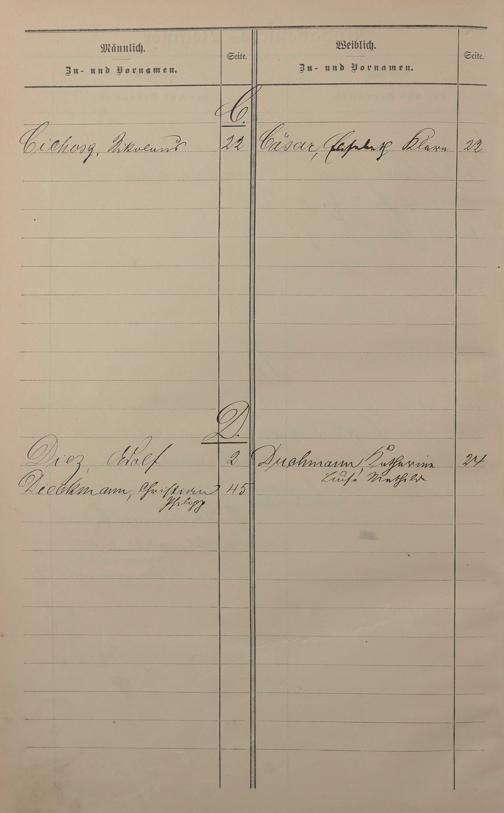 Männlich.
Zu- und Vornamen.
Seite.
Weiblich.
Zu- und Vornamen.
Seite.
C.
Cichosz, Nikolaus 22
Cäsar, Klara 22
D.
Diez, Adolf 2
Dieckmann, Christian 45
Philipp
Duchmann, Katharina 24
Luise Mathilde